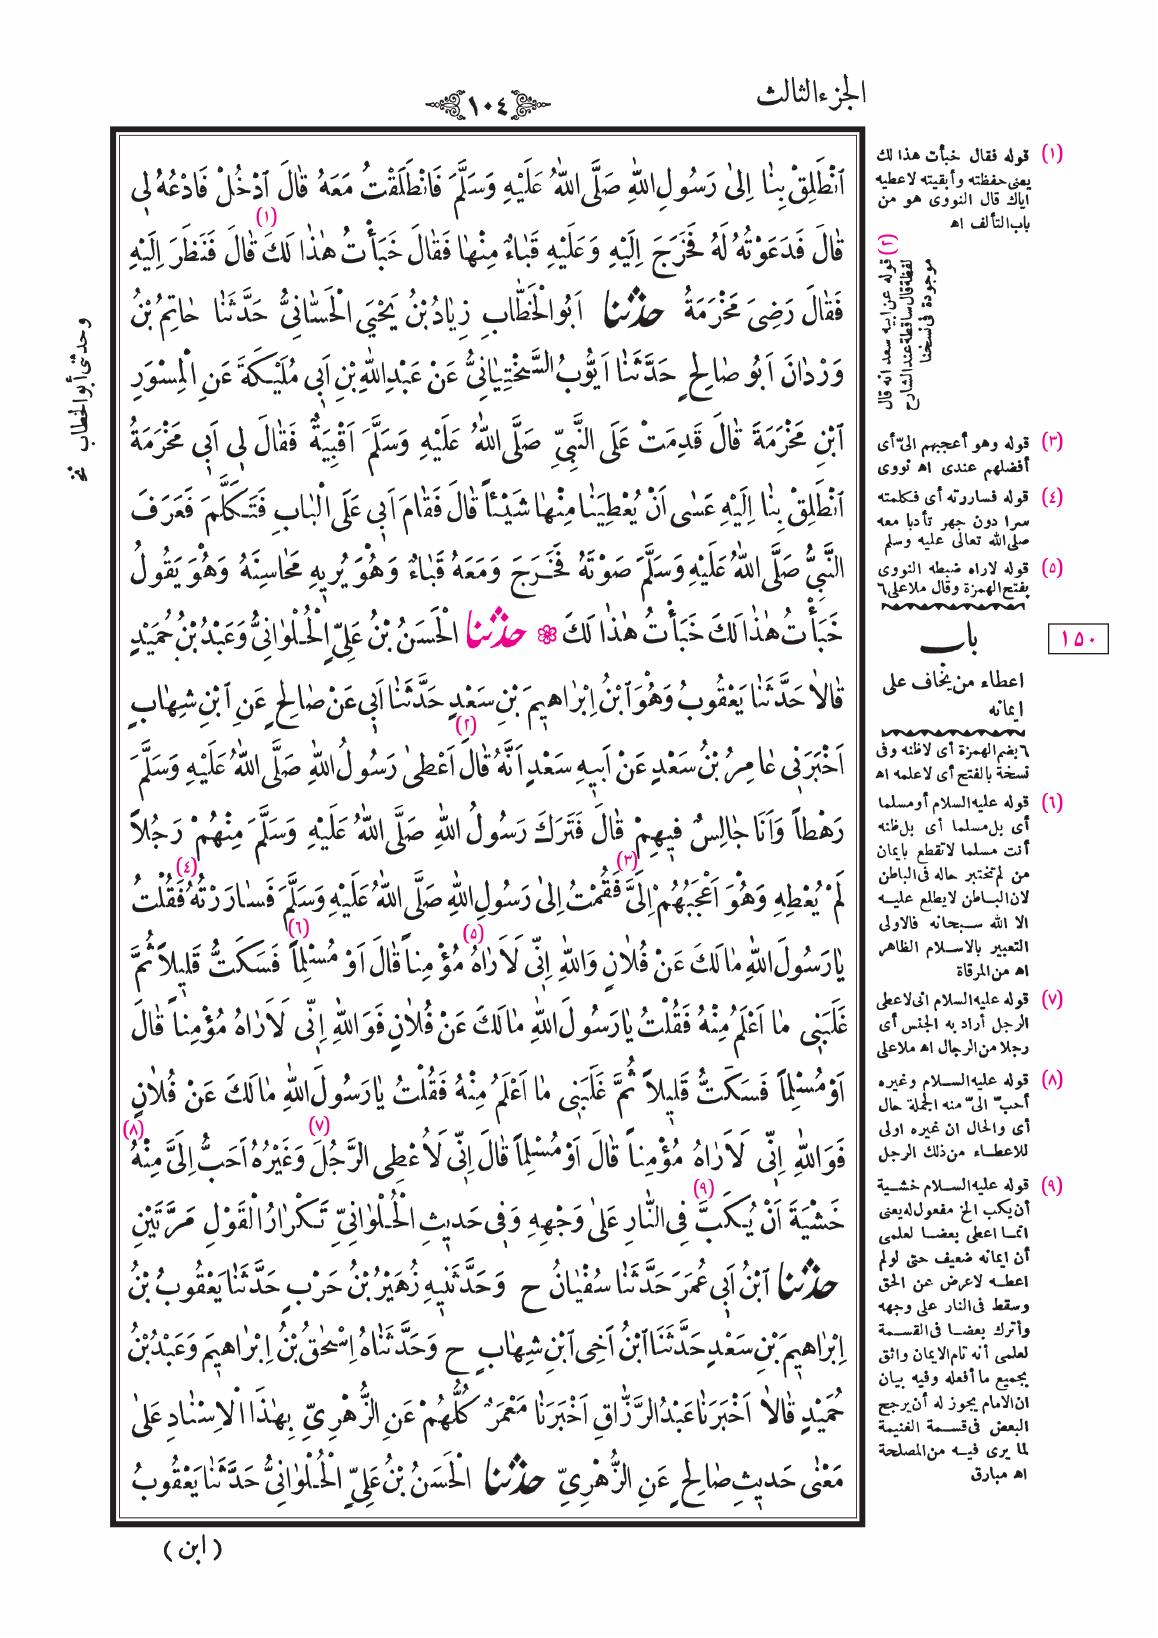 الجزء الثالث
١٠٤
اَنْطَلِقْ بِنَا اِلىٰ رَسُولِ اللهِ صَلَّى اللهُ عَلَيْهِ وَسَلَّمَ فَانْطَلَقْتُ مَعَهُ قَالَ اَدْخُلْ فَادْعُهُ لِي
قَالَ فَدَعَوْتُهُ لَهُ فَخَرَجَ اِلَيْهِ وَعَلَيْهِ قَبَاءٌ مِنْهَا فَقَالَ خَبَأْتُ هٰذَا لَكَ (١) قَالَ فَنَظَرَ اِلَيْهِ
فَقَالَ رَضِىَ مَخْرَمَةُ حدثنا اَبُو الْخَطَّابِ زِيَادُ بْنُ يَحْيَى الْحَسَّانِيُّ حَدَّثَنَا حَاتِمُ بْنُ
وَرْدَانَ اَبُو صَالِحٍ حَدَّثَنَا اَيُّوبُ السَّخْتِيَانِيُّ عَنْ عَبْدِ اللهِ بْنِ اَبِي مُلَيْكَةَ عَنِ الْمِسْوَرِ
اَبْنِ مَخْرَمَةَ قَالَ قَدِمَتْ عَلَى النَّبِيِّ صَلَّى اللهُ عَلَيْهِ وَسَلَّمَ اَقْبِيَةٌ فَقَالَ لِي اَبِي مَخْرَمَةُ
اَنْطَلِقْ بِنَا اِلَيْهِ عَسٰى اَنْ يُعْطِيَنَا مِنْهَا شَيْئاً قَالَ فَقَامَ اَبِي عَلَى الْبَابِ فَتَكَلَّمَ فَعَرَفَ
النَّبِيُّ صَلَّى اللهُ عَلَيْهِ وَسَلَّمَ صَوْتَهُ فَخَرَجَ وَمَعَهُ قَبَاءٌ وَهْوَ يُرِيهِ مَحَاسِنَهُ وَهْوَ يَقُولُ
خَبَأْتُ هٰذَا لَكَ خَبَأْتُ هٰذَا لَكَ ۞ حدثنا الْحَسَنُ بْنُ عَلِيٍّ الْحُلْوَانِيُّ وَعَبْدُ بْنُ حُمَيْدٍ
قَالَا حَدَّثَنَا يَعْقُوبُ وَهْوَ اَبْنُ اِبْرَاهِيمَ بْنِ سَعْدٍ حَدَّثَنَا اَبِي عَنْ صَالِحٍ عَنِ ابْنِ شِهَابٍ
اَخْبَرَنِي عَامِرُ بْنُ سَعْدٍ عَنْ اَبِيهِ سَعْدٍ اَنَّهُ قَالَ (٢) اَعْطىٰ رَسُولُ اللهِ صَلَّى اللهُ عَلَيْهِ وَسَلَّمَ
رَهْطاً وَاَنَا جَالِسٌ فِيهِمْ قَالَ فَتَرَكَ رَسُولُ اللهِ صَلَّى اللهُ عَلَيْهِ وَسَلَّمَ مِنْهُمْ رَجُلاً
لَمْ يُعْطِهِ وَهْوَ اَعْجَبُهُمْ اِلَيَّ (٣) فَقُمْتُ اِلىٰ رَسُولِ اللهِ صَلَّى اللهُ عَلَيْهِ وَسَلَّمَ فَسَارَرْتُهُ (٤) فَقُلْتُ
يَا رَسُولَ اللهِ مَالَكَ عَنْ فُلَانٍ وَاللهِ اِنِّي لَاَرَاهُ (٥) مُؤْمِناً قَالَ اَوْ مُسْلِماً (٦) فَسَكَتُّ قَلِيلاً ثُمَّ
غَلَبَنِي مَا اَعْلَمُ مِنْهُ فَقُلْتُ يَا رَسُولَ اللهِ مَالَكَ عَنْ فُلَانٍ فَوَاللهِ اِنِّي لَاَرَاهُ مُؤْمِناً قَالَ
اَوْ مُسْلِماً فَسَكَتُّ قَلِيلاً ثُمَّ غَلَبَنِي مَا اَعْلَمُ مِنْهُ فَقُلْتُ يَا رَسُولَ اللهِ مَالَكَ عَنْ فُلَانٍ
فَوَاللهِ اِنِّي لَاَرَاهُ مُؤْمِناً قَالَ اَوْ مُسْلِماً قَالَ اِنِّي لَاُعْطِى الرَّجُلَ (٧) وَغَيْرُهُ اَحَبُّ اِلَيَّ مِنْهُ (٨)
خَشْيَةَ اَنْ يُكَبَّ (٩) فِي النَّارِ عَلىٰ وَجْهِهِ وَفِي حَدِيثِ الْحُلْوَانِيِّ تَكْرَارُ الْقَوْلِ مَرَّتَيْنِ
حدثنا اَبْنُ اَبِي عُمَرَ حَدَّثَنَا سُفْيَانُ ح وَحَدَّثَنِيهِ زُهَيْرُ بْنُ حَرْبٍ حَدَّثَنَا يَعْقُوبُ بْنُ
اِبْرَاهِيمَ بْنِ سَعْدٍ حَدَّثَنَا ابْنُ اَخِي ابْنِ شِهَابٍ ح وَحَدَّثَنَاهُ اِسْحٰقُ بْنُ اِبْرَاهِيمَ وَعَبْدُ بْنُ
حُمَيْدٍ قَالَا اَخْبَرَنَا عَبْدُ الرَّزَّاقِ اَخْبَرَنَا مَعْمَرٌ كُلُّهُمْ عَنِ الزُّهْرِيِّ بِهٰذَا الْاِسْنَادِ عَلىٰ
مَعْنٰى حَدِيثِ صَالِحٍ عَنِ الزُّهْرِيِّ حدثنا الْحَسَنُ بْنُ عَلِيٍّ الْحُلْوَانِيُّ حَدَّثَنَا يَعْقُوبُ
( ابن )
وحدثنى أبو الخطاب نخ
(١) قوله فقال خبأت هذا لك
يعنى حفظته وأبقيته لاعطيه
اياك قال النووى هو من
باب التألف اه
(٢) قوله عن ابيه سعد انه قال
لفظة قال ساقطة عند الشارح
موجودة فى نسخنا
(٣) قوله وهو أعجبهم الىّ أى
أفضلهم عندى اه نووى
(٤) قوله فساررته أى فكلمته
سرا دون جهر تأدبا معه
صلى الله تعالى عليه وسلم
(٥) قوله لاراه ضبطه النووى
بفتح الهمزة وقال ملا على ٦
١٥٠
باب
اعطاء من يخاف على
ايمانه
٦ بضم الهمزة أى لاظنه وفى
نسخة بالفتح أى لاعلمه اه
(٦) قوله عليه السلام أو مسلما
أى بل مسلما أى بل ظنه
أنت مسلما لا تقطع بايمان
من لم تختبر حاله فى الباطن
لان الباطن لا يطلع عليه
الا الله سبحانه فالاولى
التعبير بالاسلام الظاهر
اه من المرقاة
(٧) قوله عليه السلام انى لاعطى
الرجل أراد به الجنس أى
رجلا من الرجال اه ملا على
(٨) قوله عليه السلام وغيره
أحبّ الىّ منه الجملة حال
أى والحال ان غيره اولى
للاعطاء من ذلك الرجل
(٩) قوله عليه السلام خشية
أن يكب الخ مفعول له يعنى
انما اعطى بعضا لعلمى
أن ايمانه ضعيف حتى لو لم
اعطه لاعرض عن الحق
وسقط فى النار على وجهه
وأترك بعضا فى القسمة
لعلمى أنه تام الايمان واثق
بجميع ما أفعله وفيه بيان
ان الامام يجوز له أن يرجح
البعض فى قسمة الغنيمة
لما يرى فيه من المصلحة
اه مبارق